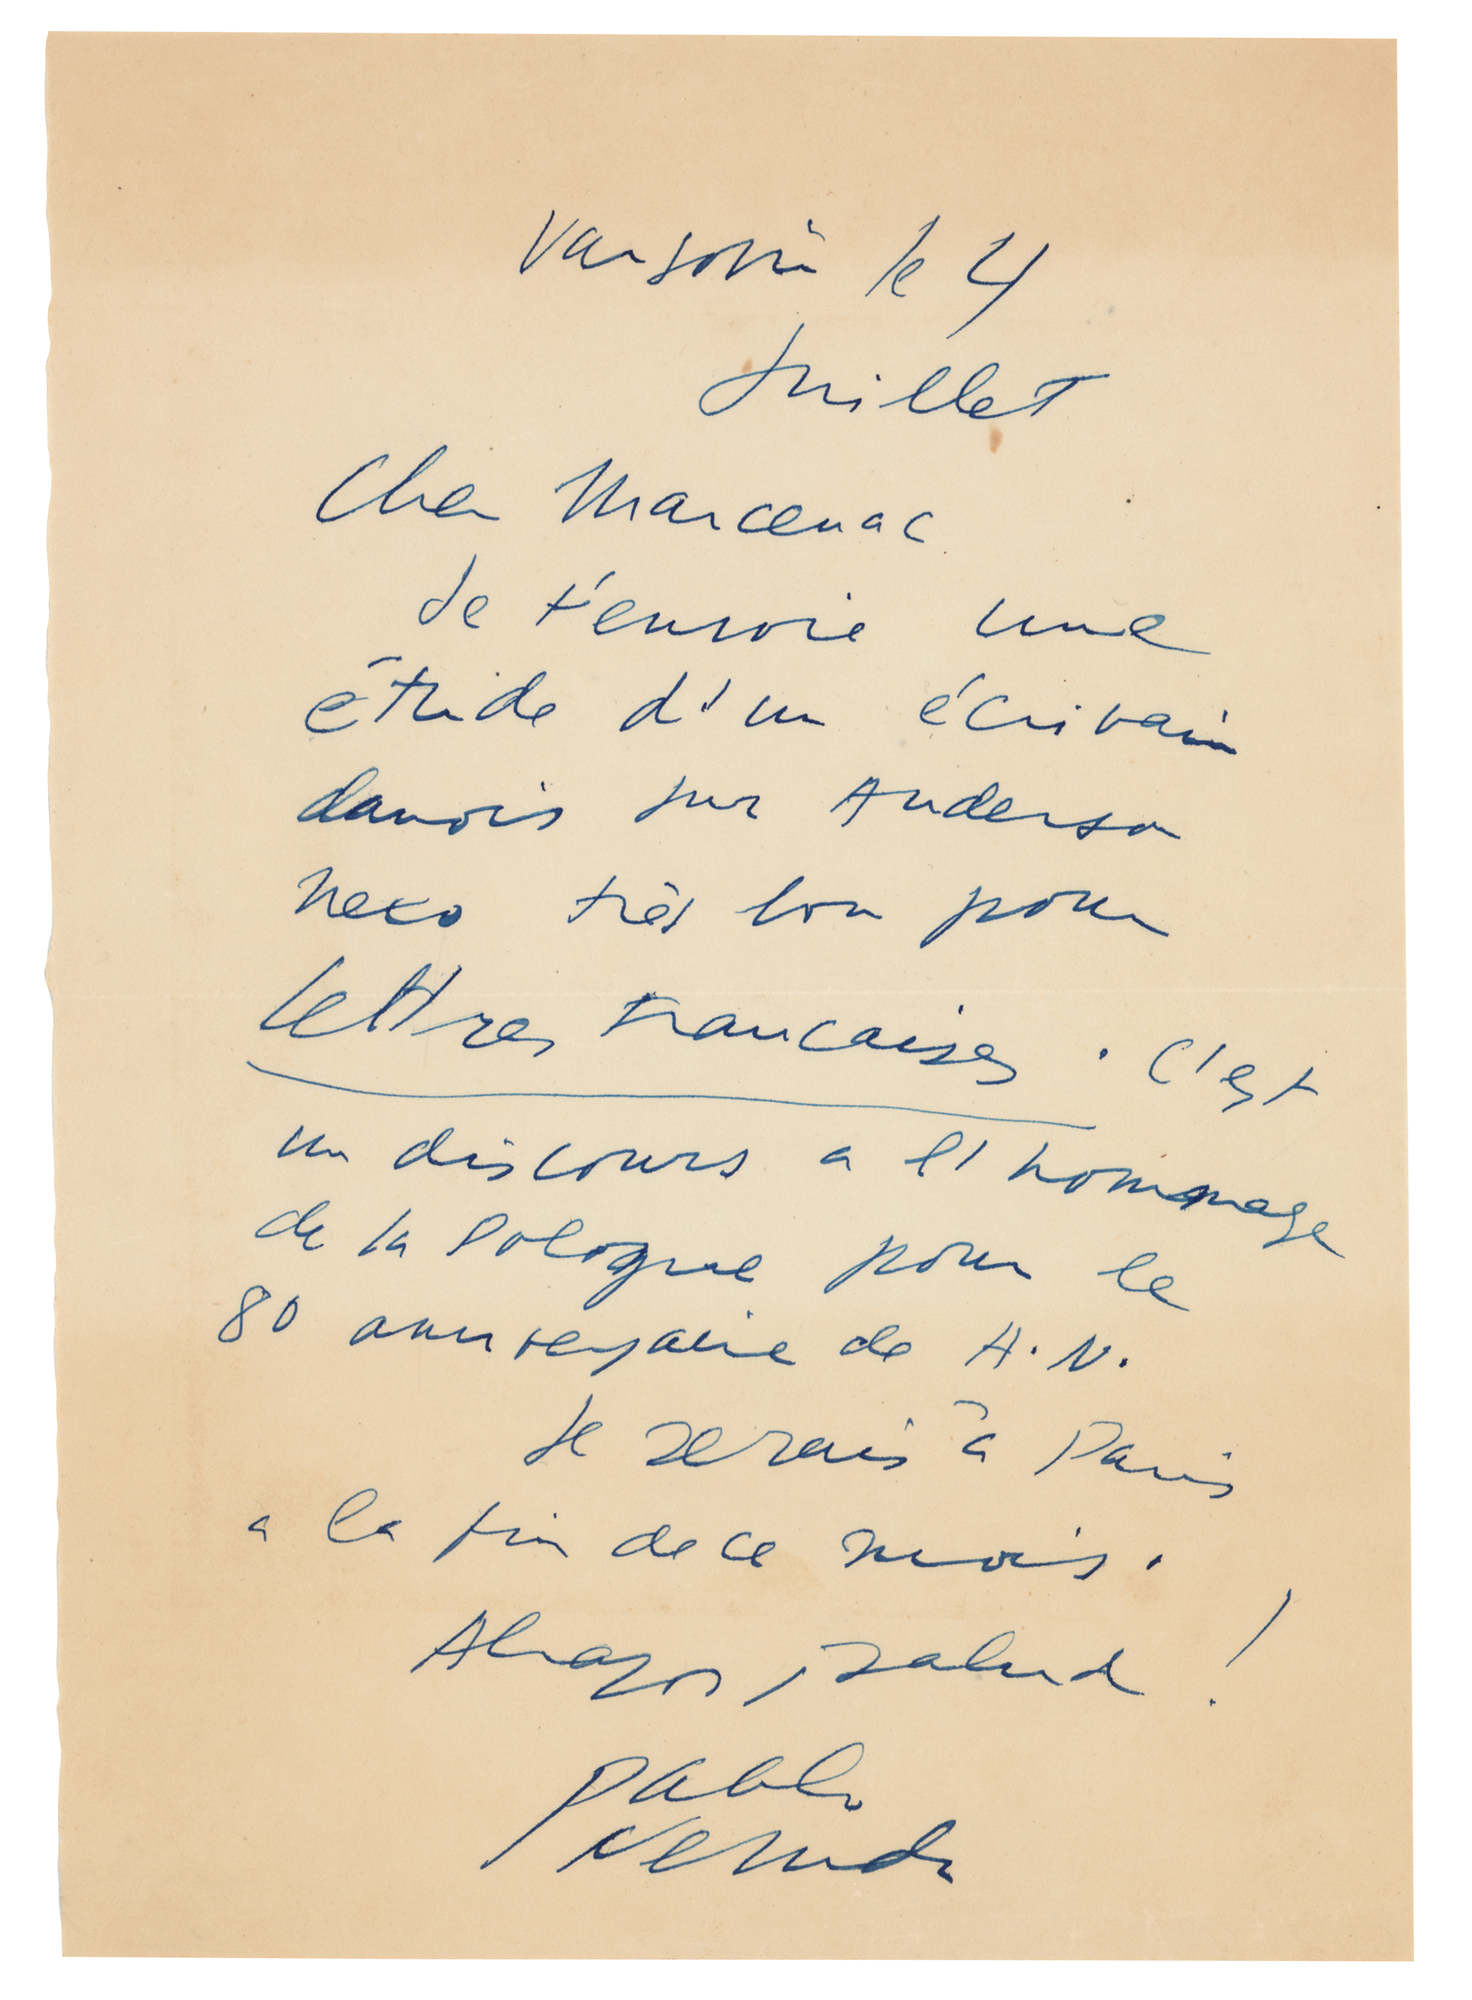 Varsovie le 4
Juillet
Cher Marcenac
Je t'envoie une
étude d'un écrivain
danois sur Anderson
Nexo très bon pour
Lettres Francaises. C'est
un discours a l'hommage
de la Pologne pour le
80 aniversaire de A.N.
Je serais à Paris
a la fin de ce mois.
Abrazos, salud!
Pablo
Neruda